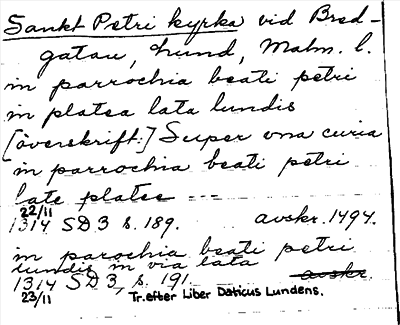 Sankt Petri kyrka vid Bred-
gatan, Lund, Malm. l.
in parrochia beati petri
in platea lata lundis
[överskrift:] Super una curia
in parrochia beati petri
late platee ---
22/11
1314 SD 3 s. 189. avskr. 1494.
in parochia beati petri
lundis in via lata
1314 SD 3, s. 191 avskr.
23/11 Tr. efter Liber Daticus Lundens.